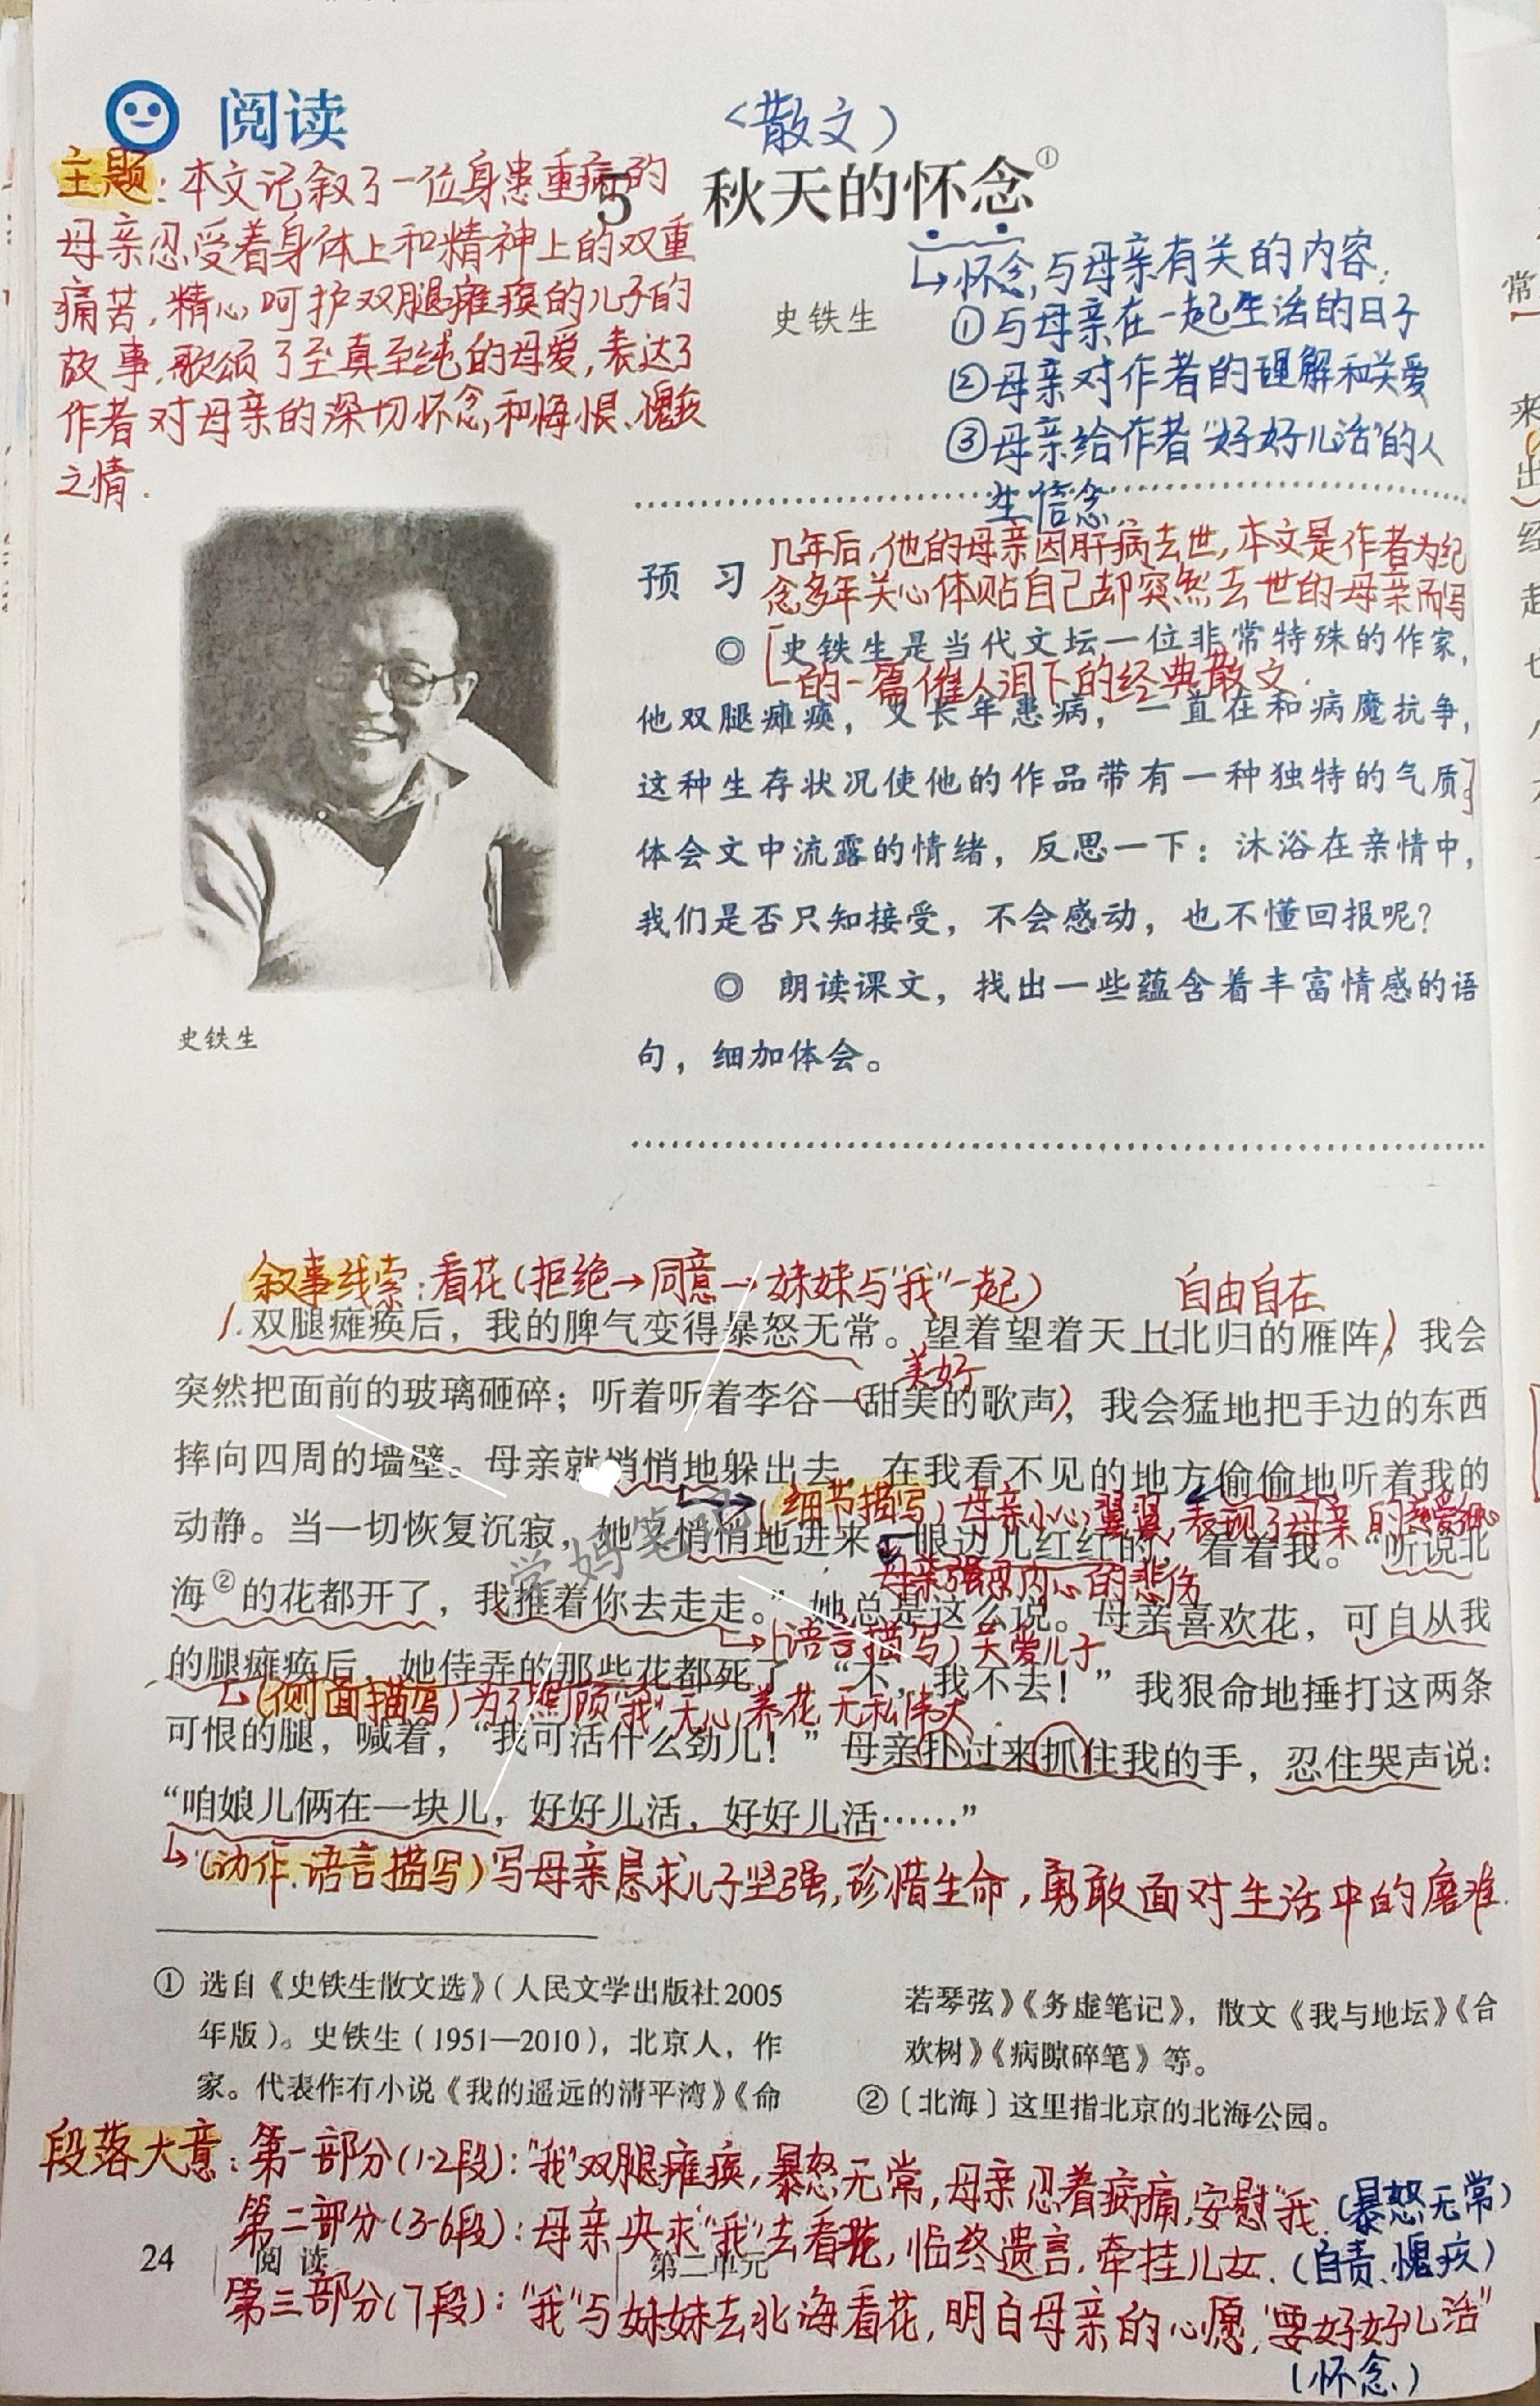 阅读
<散文)
主题:本文记叙了一位身患重病的
母亲忍受着身体上和精神上的双重
痛苦,精心呵护双腿瘫痪的儿子的
故事,歌颂了至真至纯的母爱,表达了
作者对母亲的深切怀念,和悔恨、愧疚
之情.
5 秋天的怀念①
史铁生
怀念,与母亲有关的内容:
①与母亲在一起生活的日子
②母亲对作者的理解和关爱
③母亲给作者“好好儿活”的人
生信念
史铁生
预 习
几年后,他的母亲因肝病去世,本文是作者为纪
念多年关心体贴自己却突然去世的母亲而写
的一篇催人泪下的经典散文.
◎ 史铁生是当代文坛一位非常特殊的作家,
他双腿瘫痪,又长年患病,一直在和病魔抗争,
这种生存状况使他的作品带有一种独特的气质。
体会文中流露的情绪,反思一下:沐浴在亲情中,
我们是否只知接受,不会感动,也不懂回报呢?
◎ 朗读课文,找出一些蕴含着丰富情感的语
句,细加体会。
叙事线索:看花(拒绝→同意→妹妹与“我”一起)
自由自在
1.双腿瘫痪后,我的脾气变得暴怒无常。望着望着天上北归的雁阵,我会
美好
突然把面前的玻璃砸碎;听着听着李谷一甜美的歌声,我会猛地把手边的东西
摔向四周的墙壁。母亲就悄悄地躲出去,在我看不见的地方偷偷地听着我的
(细节描写)母亲小心翼翼,表现了母亲的
动静。当一切恢复沉寂,她又悄悄地进来,眼边儿红红的,看着我。“听说北
母亲强忍内心的悲伤
海②的花都开了,我推着你去走走。”她总是这么说。母亲喜欢花,可自从我
(语言描写)关爱儿子
的腿瘫痪后,她侍弄的那些花都死了。“不,我不去!”我狠命地捶打这两条
(侧面描写)为了照顾“我”无心养花 无私伟大.
可恨的腿,喊着,“我可活什么劲儿!”母亲扑过来抓住我的手,忍住哭声说:
“咱娘儿俩在一块儿,好好儿活,好好儿活……”
(动作、语言描写)写母亲恳求儿子坚强,珍惜生命,勇敢面对生活中的磨难.
学妈笔记
① 选自《史铁生散文选》(人民文学出版社2005
年版)。史铁生(1951—2010),北京人,作
家。代表作有小说《我的遥远的清平湾》《命
若琴弦》《务虚笔记》,散文《我与地坛》《合
欢树》《病隙碎笔》等。
②〔北海〕这里指北京的北海公园。
段落大意:第一部分(1-2段):“我”双腿瘫痪,暴怒无常,母亲忍着病痛,安慰“我.(暴怒无常)
第二部分(3-6段):母亲央求“我”去看花,临终遗言,牵挂儿女.(自责、愧疚)
第三部分(7段):“我”与妹妹去北海看花,明白母亲的心愿,“要好好儿活”
(怀念)
24 阅读 第二单元